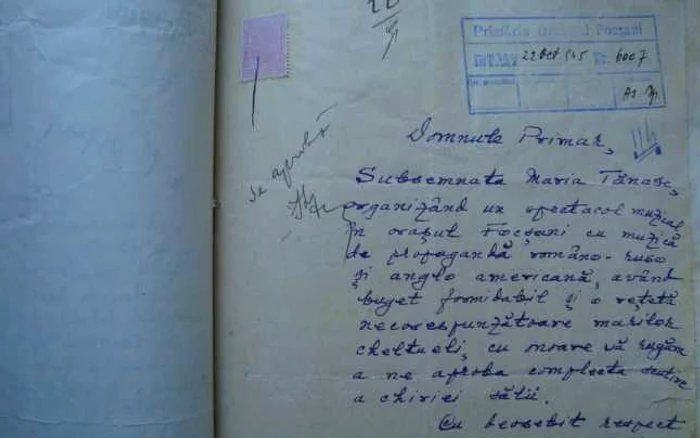 Primăria Focșani
INTRAT 22 Oct 945 Nr. 6007
Se aprobă
Domnule Primar,
Subsemnata Maria Tănase,
organizând un spectacol muzical
în orașul Focșani cu muzică
de propagandă româno-ruso
și anglo americană, având
buget formidabil și o rețetă
necorespunzătoare marilor
cheltueli, cu onoare vă rugăm
a ne aproba complecta scutire
a chiriei sălii.
Cu deosebit respect